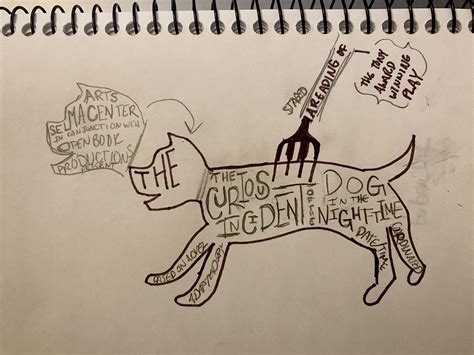 ARTS
SELMA CENTER
IN CONJUNCTION WITH
OPEN BOOK
PRODUCTIONS
PRESENT
STAGED
A READING OF
THE TONY
AWARD
WINNING
PLAY
THE
THE
CURIOUS
INCIDENT
OF THE
DOG
IN THE
NIGHT-TIME
BASED ON
DATE TIME